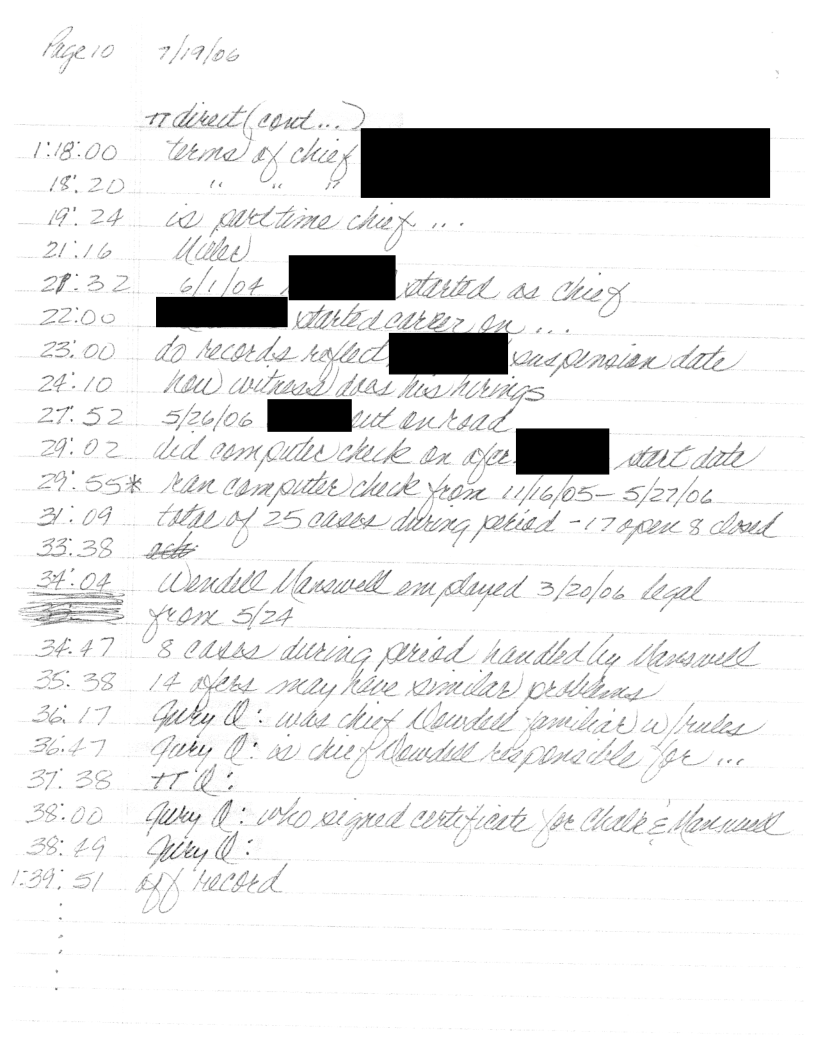 Page 10 7/19/06
π direct (cont...)
1:18:00 terms of chief
18:20 " " "
19:24 is part time chief ...
21:16 Miller
21:32 6/1/04 started as chief
22:00 started career on ...
23:00 do records reflect suspension date
24:10 how witness does his hirings
27:52 5/26/06 out on road
29:02 did computer check on ofcr. start date
29:55* ran computer check from 11/16/05 - 5/27/06
31:09 total of 25 cases during period - 17 open 8 closed
33:38
34:04 Wendell Manswell employed 3/20/06 legal
from 5/24
34:47 8 cases during period handled by Manswell
35:38 14 ofcrs may have similar problems
36:17 Jury Q: was chief Dowdell familiar w/rules
36:47 Jury Q: is chief Dowdell responsible for ...
37:38 π Q:
38:00 Jury Q: who signed certificate for Chalk & Manswell
38:49 Jury Q:
1:39:51 off record